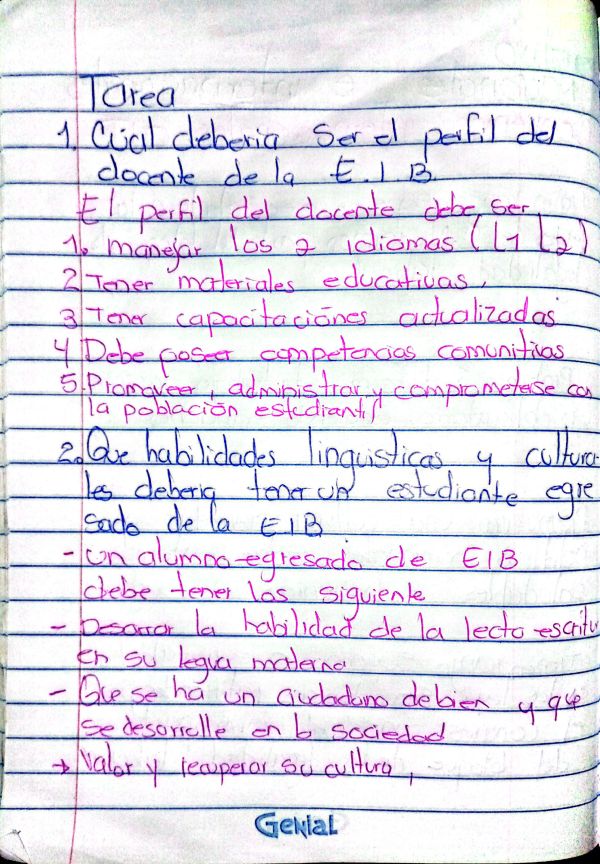 Tarea
1. Cúal deberia ser el perfil del
docente de la E.I B.
El perfil del docente debe ser
1. manejar los 2 idiomas (L1 L2)
2 Tener materiales educativas,
3 Tener capacitaciones actualizadas
4 Debe poseer competencias comunitivas
5. Promoveer, administrar y comprometerse con
la población estudiantil
2. Que habilidades linguisticas y cultura-
les deberia tener un estudiante egre
sado de la EIB
- un alumno-egresado de EIB
debe tener los siguiente
- Desorrar la habilidad de la lecto-escritu
en su legua materna
- Que se ha un ciudadano debien y que
se desorrolle en la sociedad
→ Valor y recuperar su cultura,
GENIAL